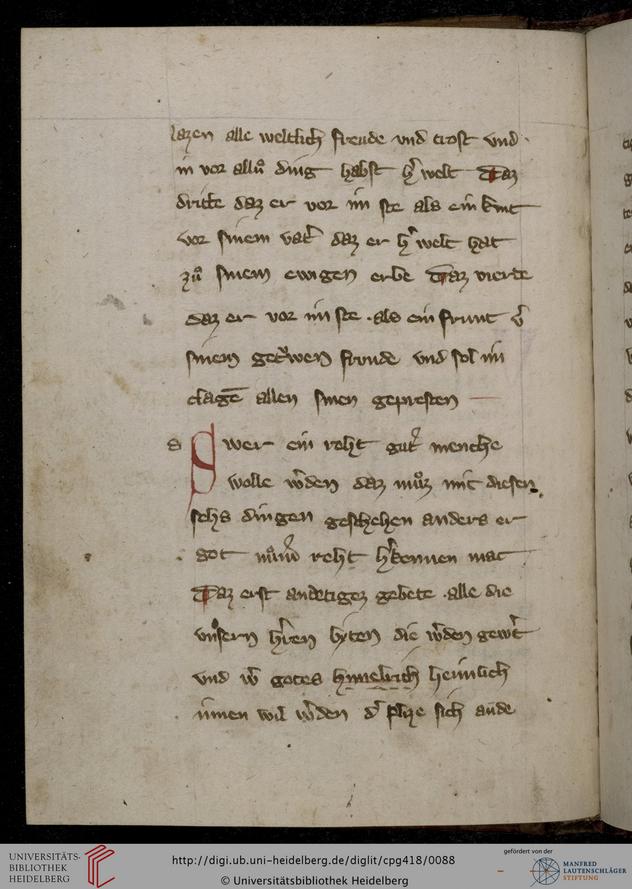 lazen alle weltlich freude vnd trost vnd
in vor allu᷎ ding habst h᷎ welt Daz
dritte daz er vor im ste als ein kint
vor sinem vat᷎ daz er h᷎ welt hat
zuͦ sinem ewigen erbe Daz vierte
daz er vor im ste · als ein frunt v᷎
sinem get᷎wen frunde vnd sol im
clagē allen sinen gepresten
s Swer ein reht gut᷎ mensche
wolle w᷎den daz muͦz mit diesen
sehs dingen geschehen anders er
got reht h᷎kennen mac
Daz erst andehtigez gebete · alle die
vnsern h᷎ren biten die w᷎den gew᷎t
vnd w᷎ gotes himelrich heimlich
innen wil w᷎den d᷎ flize sich an de
UNIVERSITÄTS-
BIBLIOTHEK
HEIDELBERG
http://digi.ub.uni-heidelberg.de/diglit/cpg418/0088
© Universitätsbibliothek Heidelberg
gefördert von der
MANFRED
LAUTENSCHLÄGER
STIFTUNG